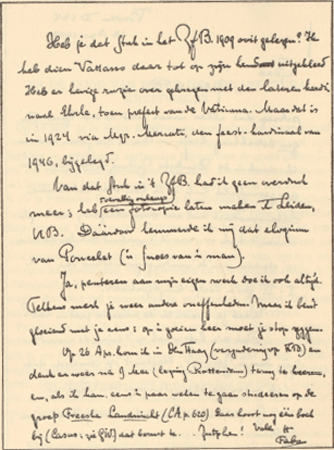 Heb je dat stuk in het ZfB. 1909 ooit gelezen? Ik
heb dien Vattasso daar tot op zijn hemd uitgekleed
Heb er hevige ruzie over gekregen met den lateren kardi
naal Ehrle, toen prefect van de Vaticana. Maar dat is
in 1924 via Mgr. Mercati, den feest-kardinaal van
1946, bijgelegd.
Van dat stuk in 't ZfB. had ik geen overdruk
meer; heb toevallig onlangs een fotocopie laten maken te Leiden,
UB. Daarvoor kennerde ik mij dat elogium
van Poncelet (is snoes van 'n man).
Ja, penteren aan mijn eigen werk doe ik ook altijd.
Telkens merk je weer andere oneffenheden. Maar ik ben 't
gloeiend met je eens: op 'n goeien keer moet je stop zeggen.
Op 26 Apr. kom ik in Den Haag (vergadering op KB) en
denk er weer na 9 Mei (lezing Rotterdam) terug te keeren,
en, als ik kan, een paar weken te gaan studeeren op de
groep Breeske Landnicht (CA p. 620) Daar hoort nog één boek
bij (Casus; zie GW) dat berust te... Zutphen! Vale!